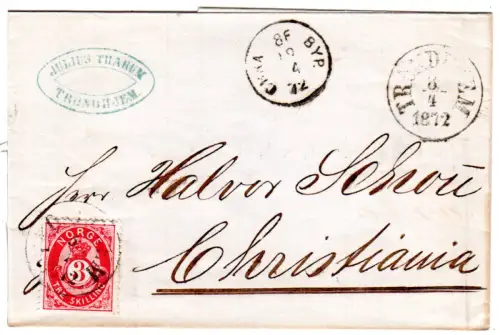 JULIUS THAREM
TRONDHJEM.
CHRA BYP
8F
4
72
TRONDHJEM
8
4
1872
Herr Halvor Schou
Christiania
NORGE
3
TRE SKILLING